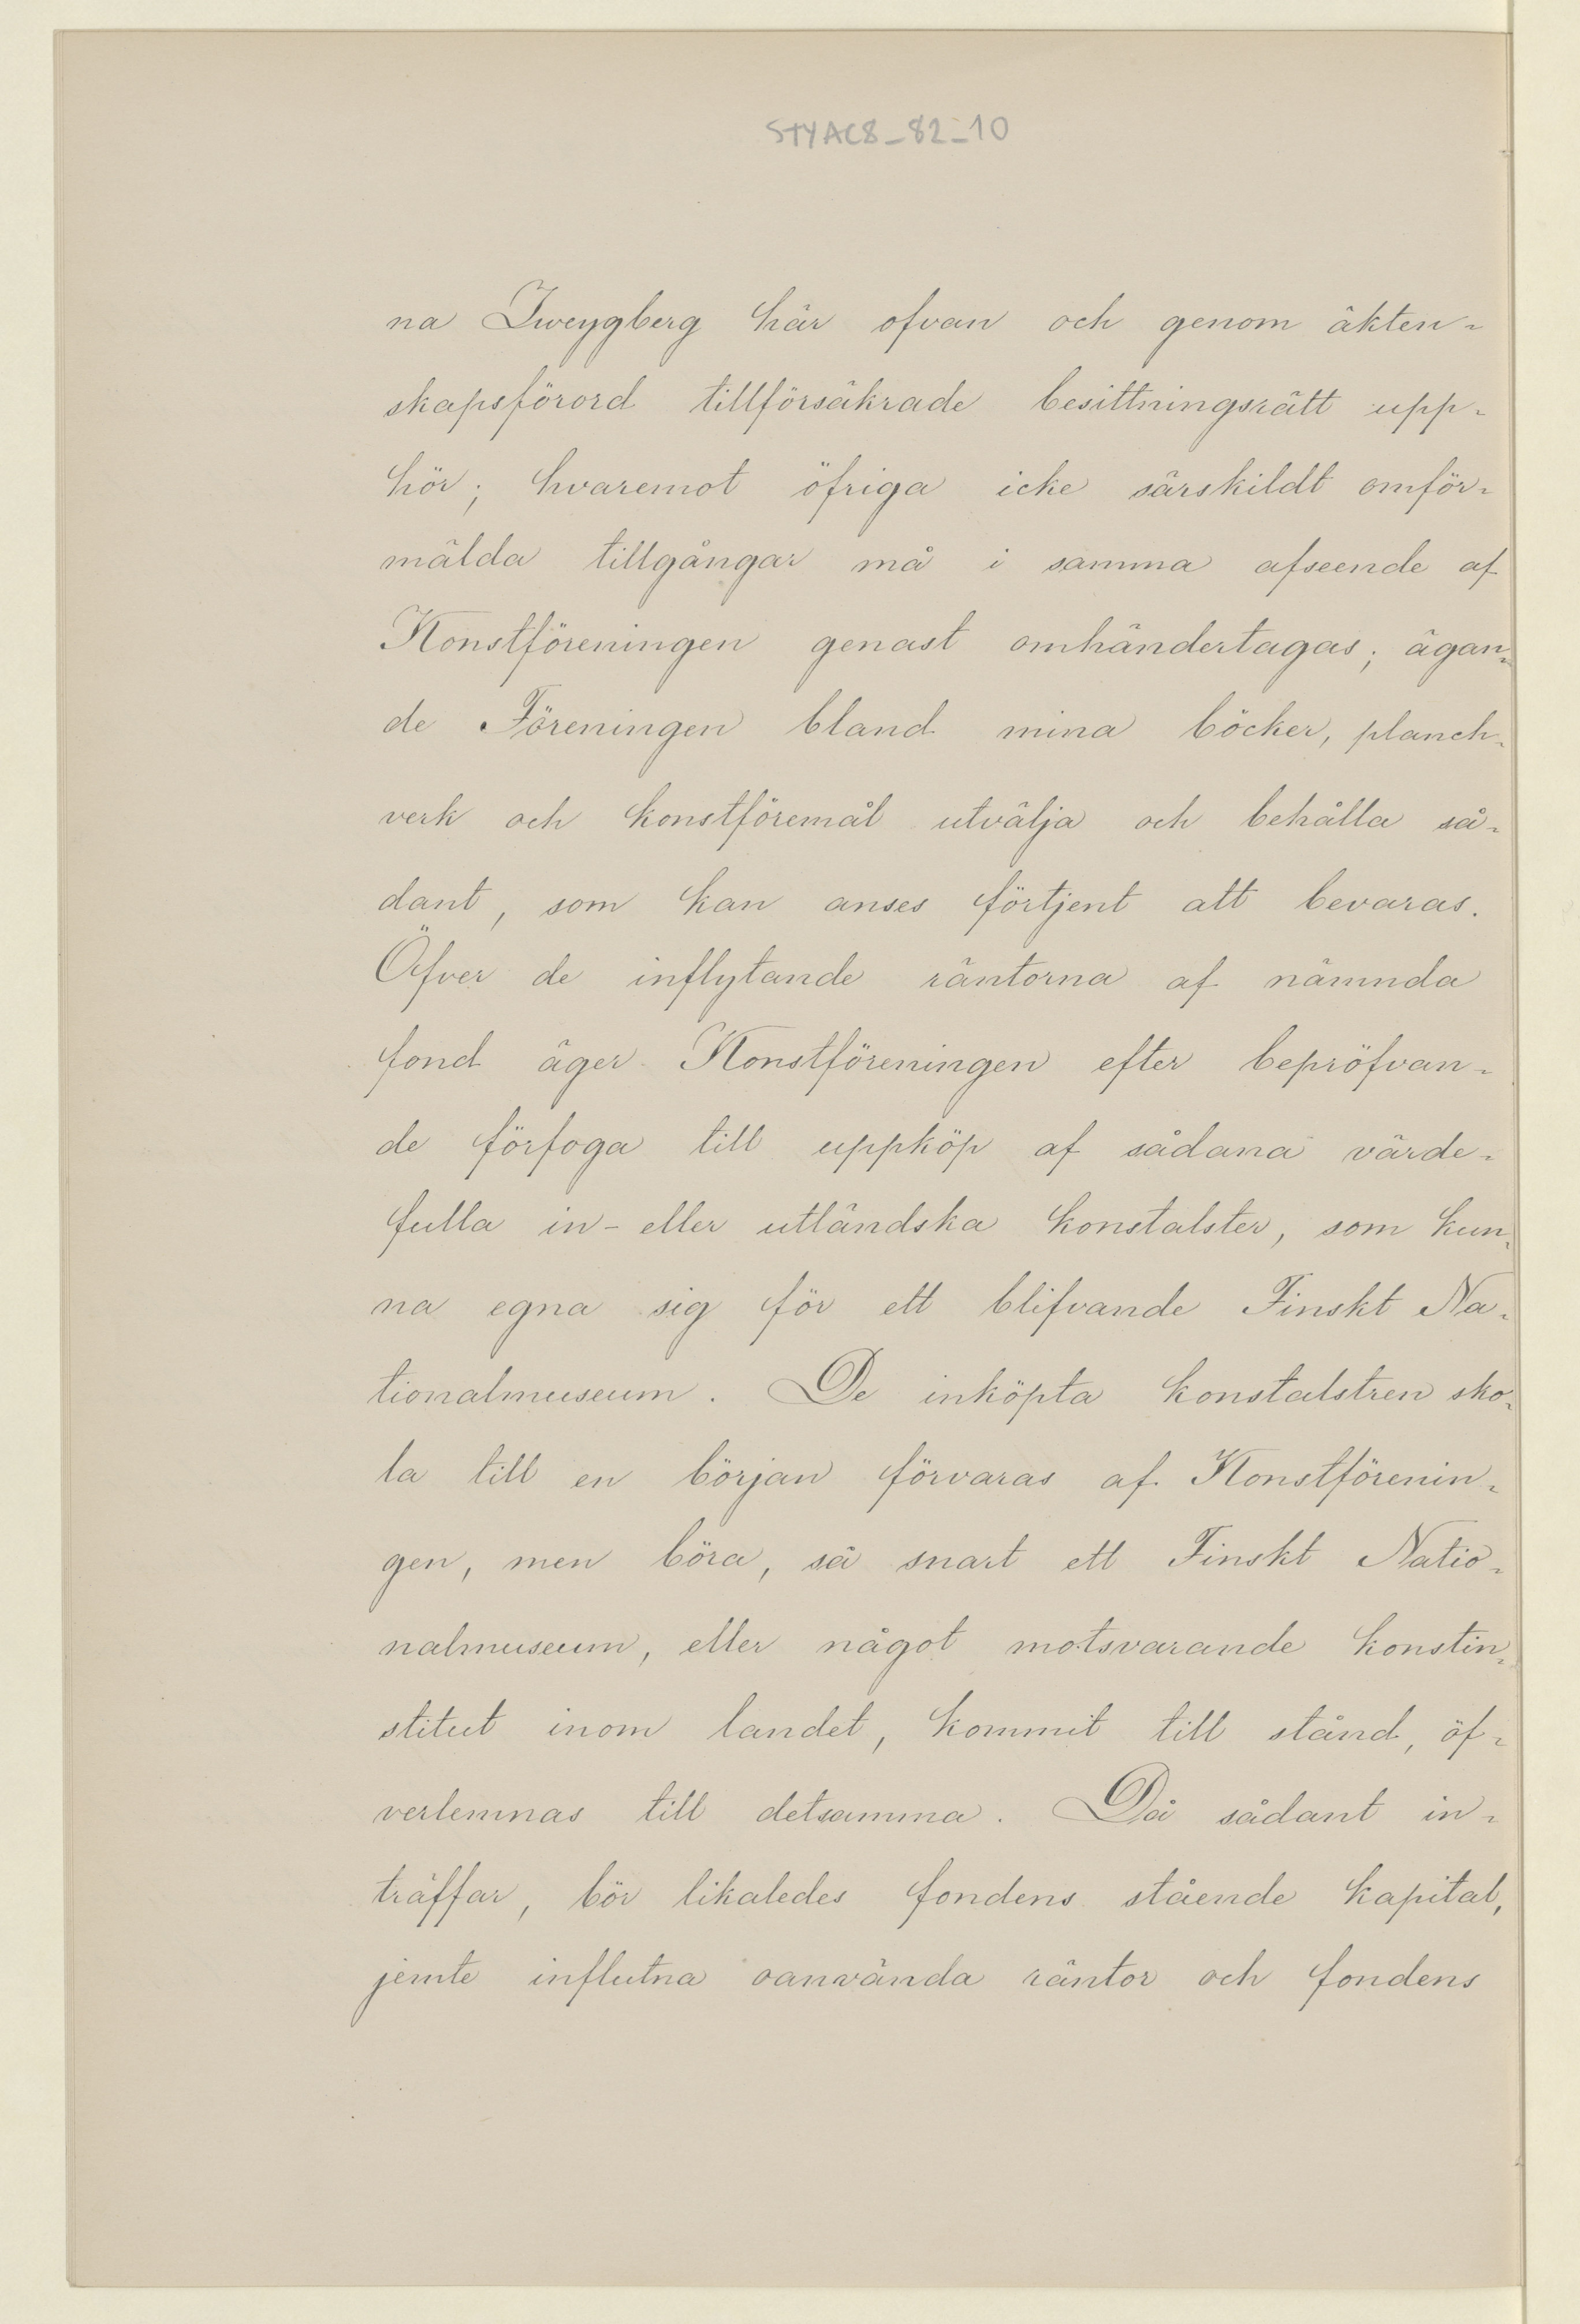 STYAC8_82_10
na Zweygberg här ofvan och genom äkten-
skapsförord tillförsäkrade besittningsrätt upp-
hör; hvaremot öfriga icke särskildt omför-
mälda tillgångar må i samma afseende af
Konstföreningen genast omhändertagas; ägan-
de Föreningen bland mina böcker, planch-
verk och konstföremål utvälja och behålla så-
dant, som kan anses förtjent att bevaras.
Öfver de inflytande räntorna af nämnda
fond äger Konstföreningen efter bepröfvan-
de förfoga till uppköp af sådana värde-
fulla in- eller utländska konstalster, som kun-
na egna sig för ett blifvande Finskt Na-
tionalmuseum. De inköpta konstalstren sko-
la till en början förvaras af Konstförenin-
gen, men böra, så snart ett Finskt Natio-
nalmuseum, eller något motsvarande konstin-
stitut inom landet, kommit till stånd, öf-
verlemnas till detsamma. Då sådant in-
träffar, bör likaledes fondens stående kapital,
jemte influtna oanvända räntor och fondens